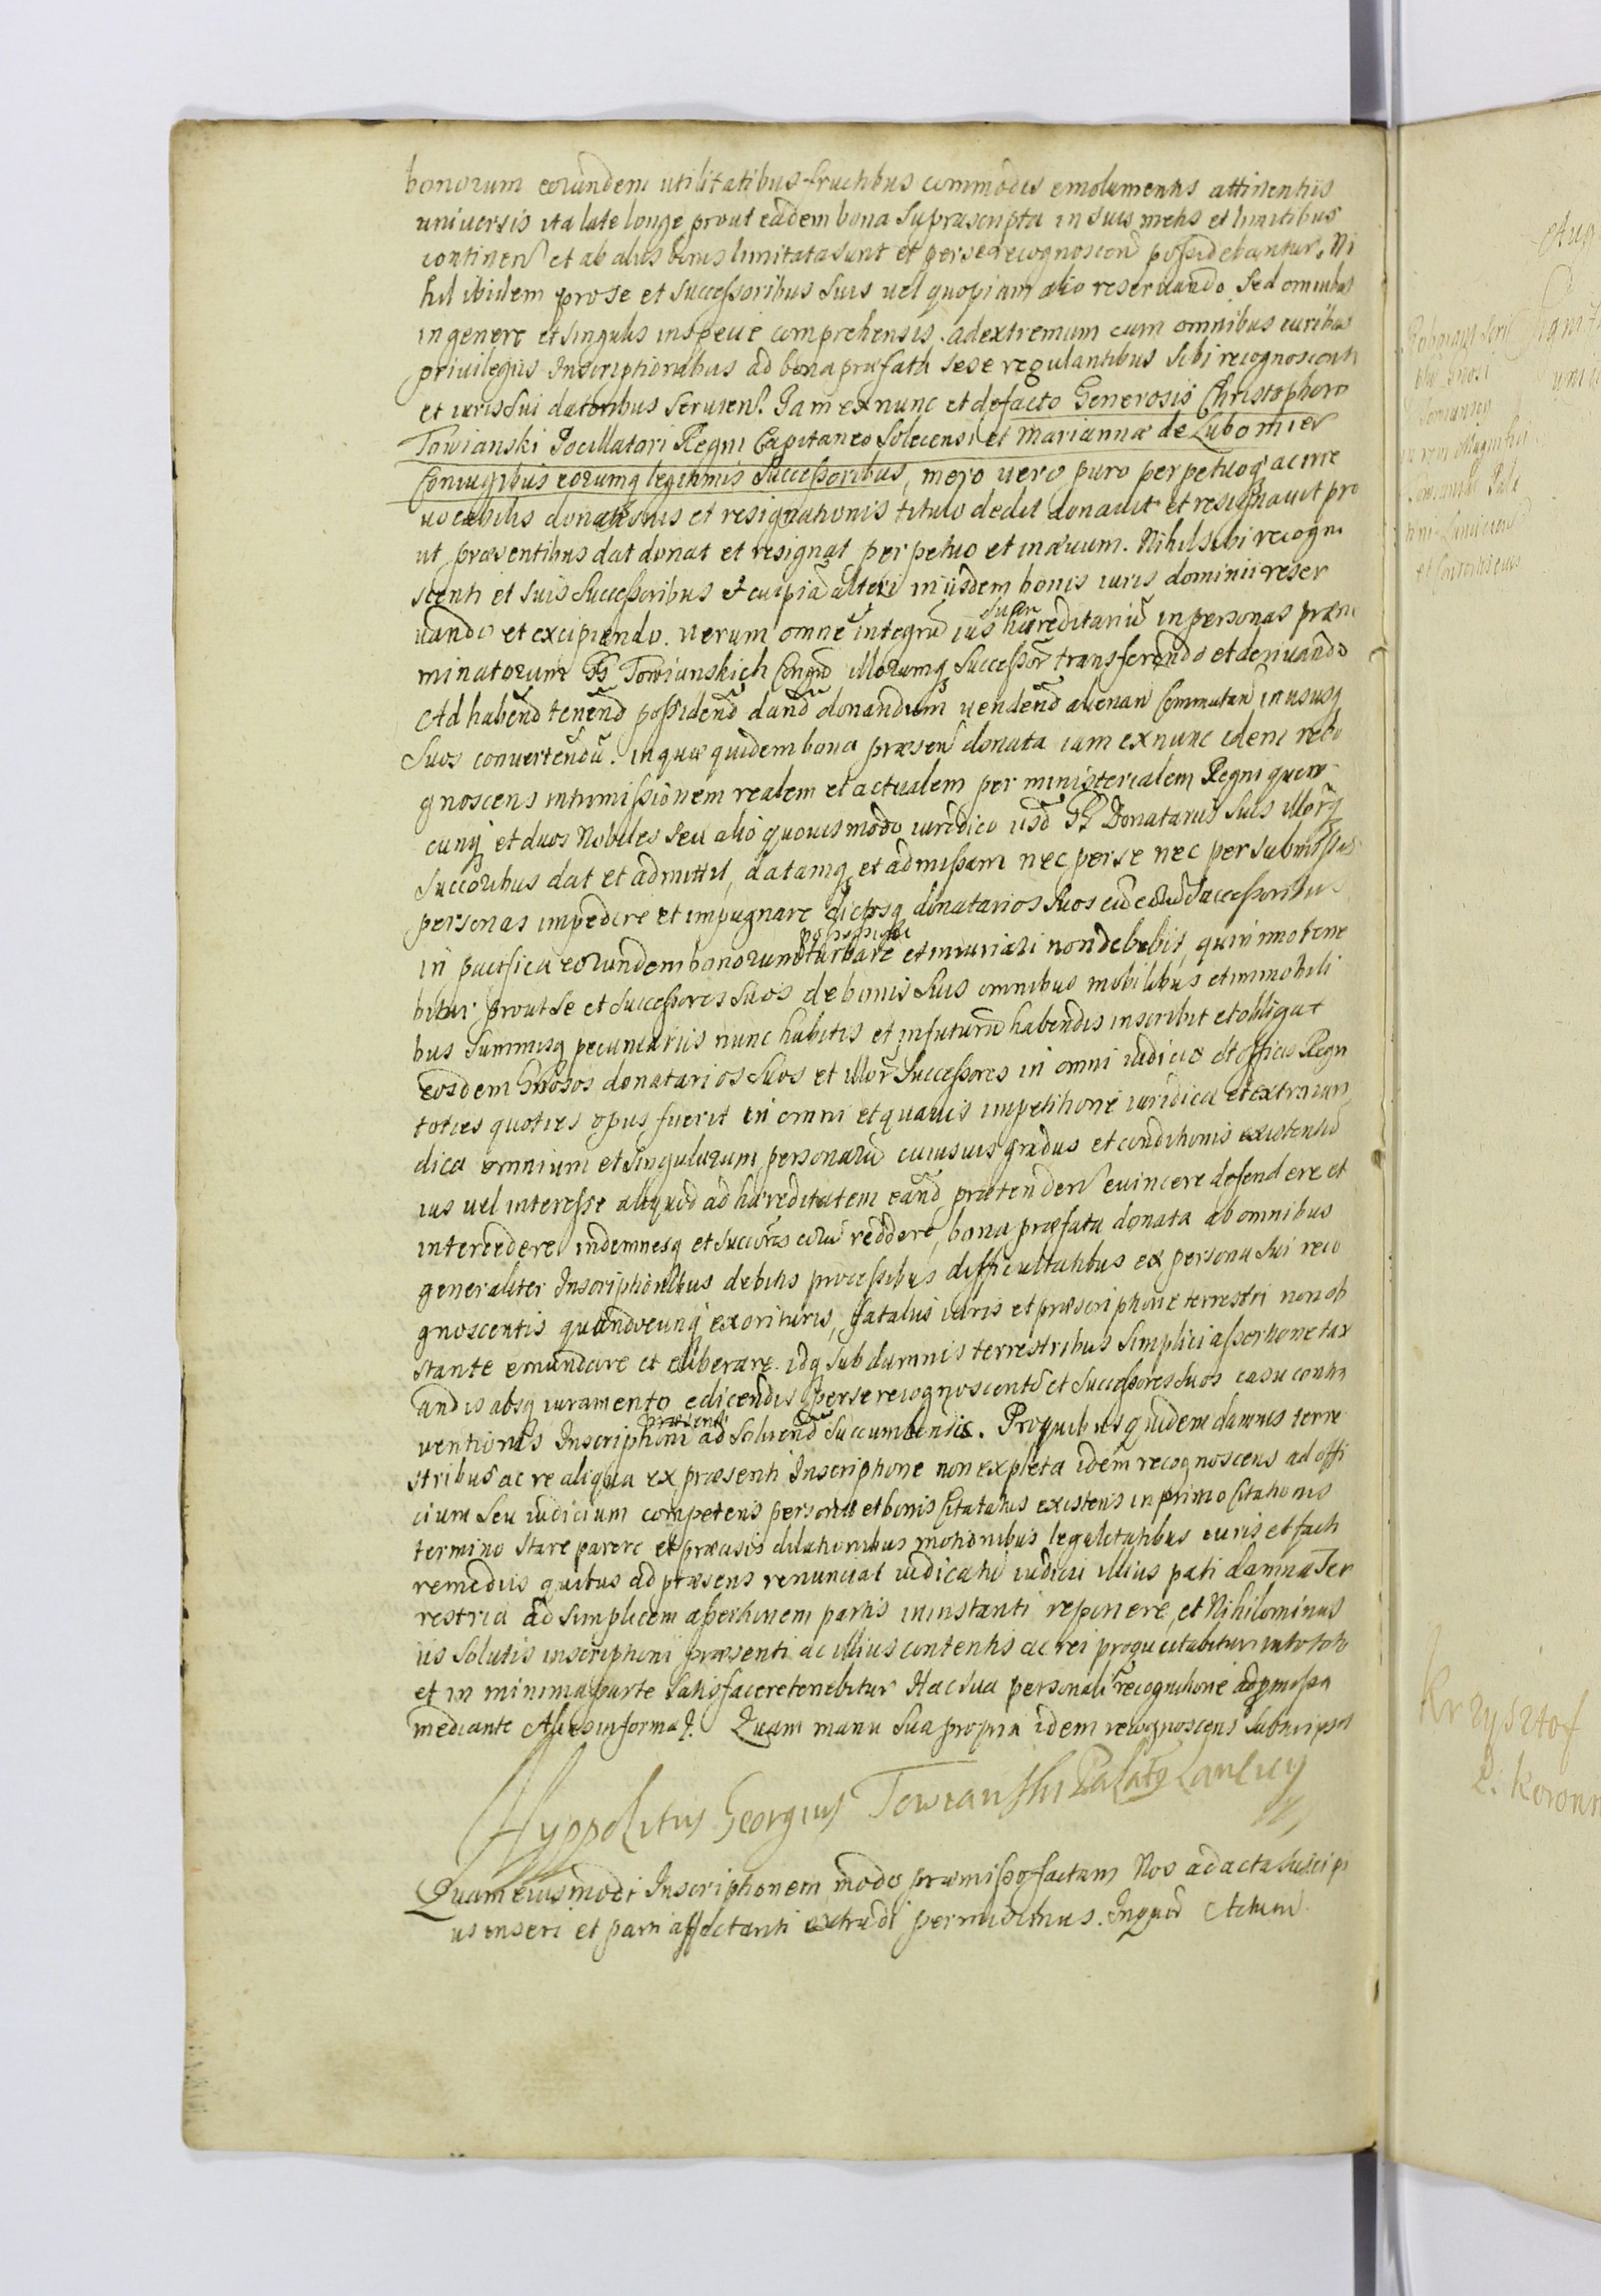 bonorum eorundem utilitatibus fructibus commodis emolumentis attinentiis
universis ita late longe prout eadem bona suprascripta in suis metis et limitibus
continen̄ et ab aliis bonis limitata sunt et per se recognoscen̄ possidebantur. Ni
hil ibidem pro se et successoribus suis vel quopiam alio reservando. Sed omnibus
in genere et singulis in specie comprehensis. ad extremum cum omnibus iuribus
privilegiis Inscriptionibus ad bona præfata sese regulantibus sibi recognoscenti
et iuris sui datoribus servien̄. Jam ex nunc et de facto Generosis Christophoro
Towianski Pocillatori Regni Capitaneo Solecensi et Mariannæ de Lubomier
Coniugibus eorumq legitimis successoribus, mero vero puro perpetuoq ac irre
vocabilis donationis et resignationis titulo dedit donavit et resignavit pro
ut præsentibus dat donat et resignat perpetuo et in ævum. Nihil sibi recogno
scenti et suis successoribus et cuipiā alteri in iisdem bonis iuris dominii reser
vando et excipiendo. verum omnē integrū ius suūm hæreditariū in personas præno
minatorum GG Towianskich Congū illorumq successor̄ transferendo et derivando
Ad habend̄ tenend̄ possidend̄ dand̄ donandum̄ vendend̄ alienan̄ commutan̄ in ususq
suos convertendū. in quæ quidem bona præsen̄ donata iam ex nunc idem reco
gnoscens intromissionem realem et actualem per ministerialem Regni quem
cunq et duos Nobiles seu alio quovis modo iuridico iisd̄ GG Donatariis suis illor̄q
succōribus dat et admittit, datamq et admissam nec per se nec per submissas
personas impedire et impugnare dictosq donatarios suos eūd eorūd successoribus
in pacifica eorundem bonorum possessione turbare et iniuriari non debebit, quin imo tene
bitur prout se et successores suos de bonis suis omnibus mobilibus et immobili
bus summisq pecuniariis nunc habitis et in futurū habendis inscribit et obligat
eosdem Gnōsos donatarios suos et illor̄ successores in omni iudicio et officio Regni
toties quoties opus fuerit in omni et quavis impetitione iuridica et extraiuri
dica omnium et singularum personarū cuiusvis gradus et conditionis existentiū
ius vel interesse aliquod ad hæreditatem eand̄ prætenden̄ evincere defendere et
intercedere indemnesq et succōres eorū reddere, bona præfata donata ab omnibus
generaliter Inscriptionibus debitis processibus difficultatibus ex persona sui reco
gnoscentis quandocunq exorituris, fatalis iuris et præscriptione terrestri non ob
stante emundare et eliberare. idq sub damnis terrestribus simplici assertione tax
andis absq iuramento edicendis per se recognoscent̄ et successores suos casu contra
ventionis Inscriptioni præsenti ad solvend̄ succumbendis. Pro quibus quidem damnis terre
stribus ac re aliqua ex præsenti Inscriptione non expleta idem recognoscens ad offi
cium seu iudicium competens persona et bonis citatatus existens in primo citationis
termino stare parere et præcisis dilationibus motionibus legalitatibus iuris et facti
remediis quibus ad præsens renunciat iudicatū iudicii illius pati damna Ter
restria ad simplicem assertionem partis in instanti reponere, et Nihilominus
iis solutis inscriptioni præsenti ac illius contentis ac rei pro qua citabitur in toto toto
et in minima parte satisfacere tenebitur Hac sua personali recognitione ad pmissa
mediante Aliis in forma. Quam manu sua propria idem recognoscens subscripsit
Hyppolitus Georgius Towianski Palatis Lanlicij
Quam eiusmodi Inscriptionem modo præmisso factam Nos ad acta suscipi
us inseri et parti affectanti extradi permisimus. In quod Actum
Krzysztof